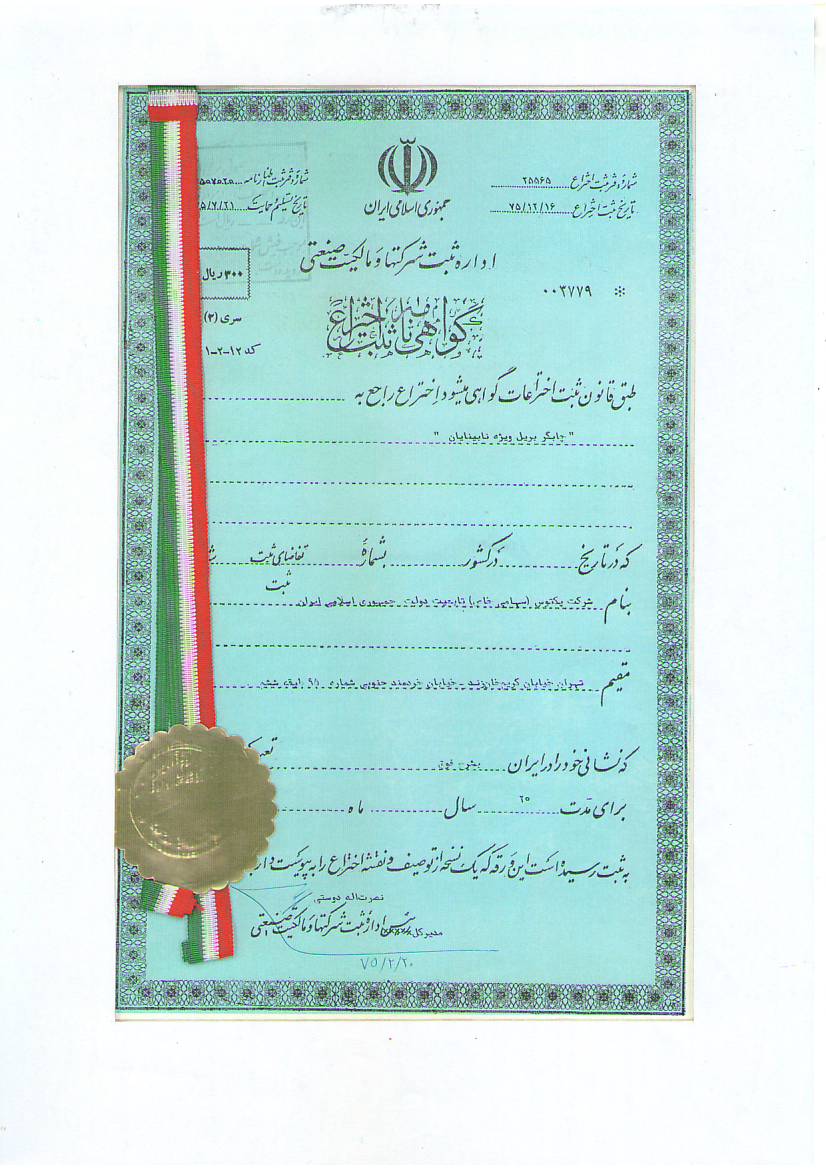 جمهوری اسلامی ایران
شماره دفتر ثبت اختراع ۲۵۵۶۵
تاریخ ثبت اختراع ۷۵/۱۲/۱۶
شماره دفتر ثبت اظهارنامه
تاریخ تسلیم حمایت ۵/۷/۲۱
اداره ثبت شرکتها و مالکیت صنعتی
۳۰۰ ریال
* ۰۰۲۷۷۹
سری (۳)
گواهی نامه ثبت اختراع
کد ۱۲-۲-۱
طبق قانون ثبت اختراعات گواهی میشود اختراع راجع به
" چاپگر بریل ویژه نابینایان "
که در تاریخ در کشور بشماره تقاضای ثبت
ثبت
بنام شرکت پکتوس (سهامی خاص) تابعیت دولت جمهوری اسلامی ایران
مقیم تهران خیابان کریمخان زند - خیابان خردمند جنوبی شماره ۹۵ طبقه ششم
که نشانی خود را در ایران بشرح فوق
برای مدت ۲۰ سال ماه
به ثبت رسیده است این ورقه که یک نسخه از توصیف و نقشه اختراع را به پیوست دارد
نصرت اله دوستی
مدیر کل اداره ثبت شرکتها و مالکیت صنعتی
۷۵/۲/۲۰